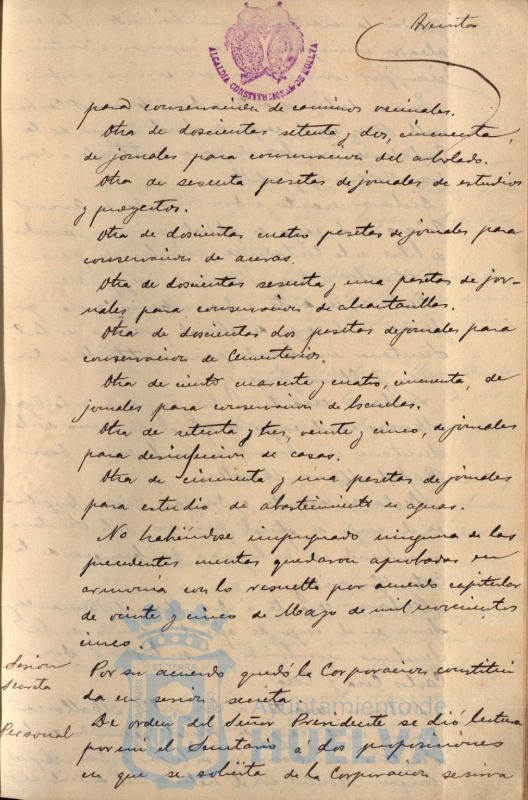 Treinta
ALCALDIA CONSTITUCIONAL DE HUELVA
para conservación de caminos vecinales.
Otra de doscientas setenta y dos, cincuenta,
de jornales para conservacion del arbolado.
Otra de sesenta pesetas de jornales de estudios
y proyectos.
Otra de doscientas cuatro pesetas de jornales para
conservacion de aceras.
Otra de doscientas sesenta y una pesetas de jor-
nales para conservacion de alcantarillas.
Otra de doscientas dos pesetas de jornales para
conservacion de Cementerios.
Otra de ciento cuarenta y cuatro, cincuenta, de
jornales para conservacion de Escuelas.
Otra de setenta y tres, veinte y cinco, de jornales
para desinfeccion de casas.
Otra de cincuenta y una pesetas de jornales
para estudio de abastecimiento de aguas.
No habiéndose impugnado ninguna de las
precedentes cuentas quedaron aprobadas en
armonia con lo resuelto por acuerdo capitular
de veinte y cinco de Mayo de mil novecientos
cinco.
Sesion
Secreta
Por su acuerdo quedó la Corporacion constitui
da en sesion secreta.
Personal
De orden del Señor Presidente se dió lectura
por mi el Secretario á dos proposiciones
en que se solicita de la Corporacion se sirva
Ayuntamiento de
HUELVA